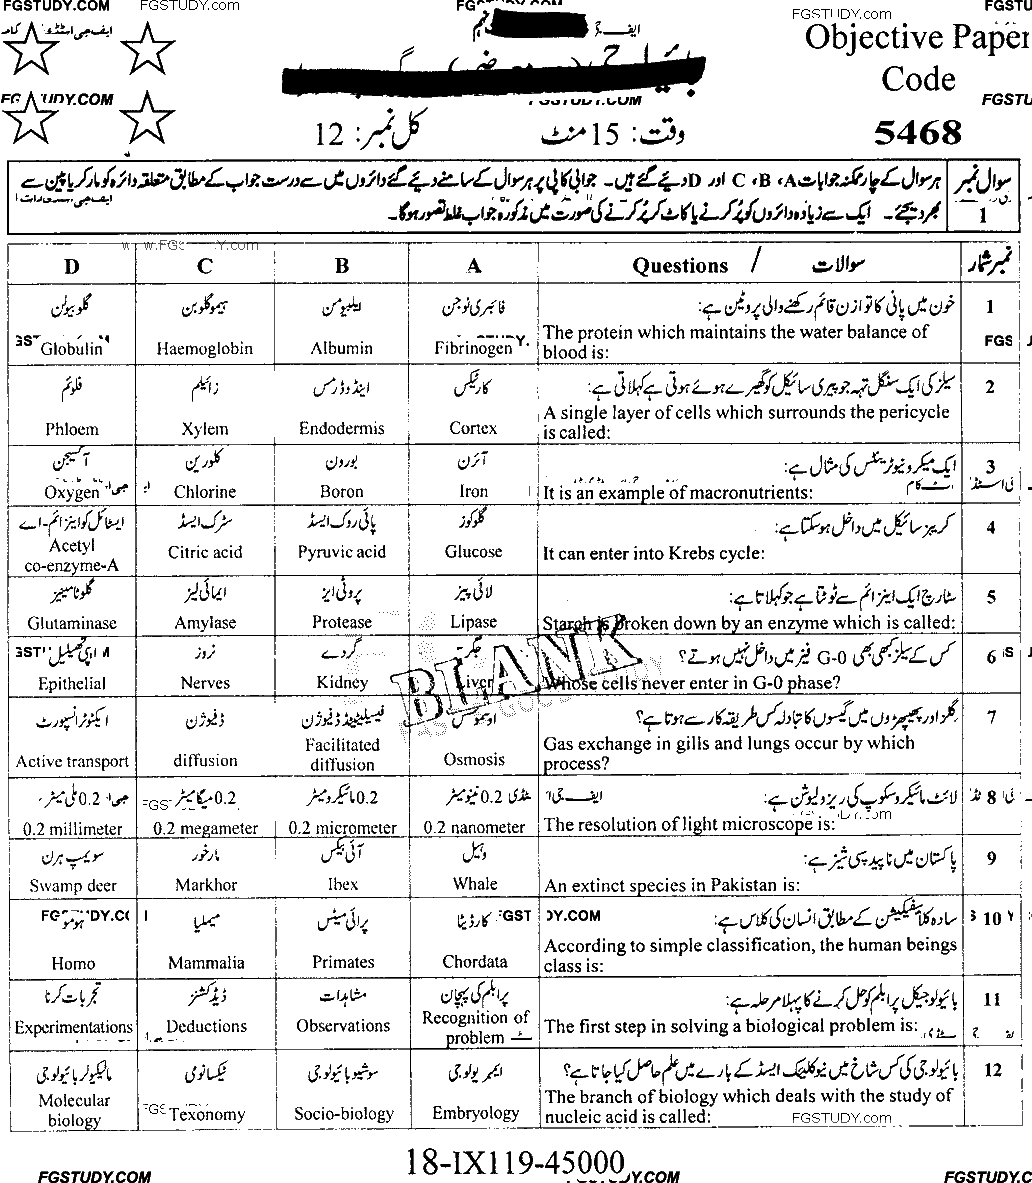 FGSTUDY.COM FGSTUDY.com FGSTUDY.com FGSTU
Objective Paper
Code
FGSTUDY.COM
5468
وقت: 15 منٹ
کل نمبر: 12
سوال نمبر 1
ہر سوال کے چار ممکنہ جوابات A، B، C اور D دیئے گئے ہیں۔ جوابی کاپی پر ہر سوال کے سامنے دیئے گئے دائروں میں سے درست جواب کے مطابق متعلقہ دائرہ کو مارکر یا پین سے
بھر دیجئے۔ ایک سے زیادہ دائروں کو پُر کرنے یا کاٹ کر پُر کرنے کی صورت میں مذکورہ جواب غلط تصور ہوگا۔
D C B A Questions / سوالات نمبر شمار
1 خون میں پانی کا توازن قائم رکھنے والی پروٹین ہے:
فائبری نوجن ایلبیومن ہیموگلوبن گلوبیولن
The protein which maintains the water balance of
blood is:
Globulin Haemoglobin Albumin Fibrinogen
2 سیلز کی ایک سنگل تہہ جو پیری سائیکل کو گھیرے ہوئے ہوتی ہے کہلاتی ہے:
کارٹیکس اینڈوڈرمس زائیلم فلوئم
A single layer of cells which surrounds the pericycle
is called:
Phloem Xylem Endodermis Cortex
3 ایک میکرونیوٹرینٹس کی مثال ہے:
آئرن بورون کلورین آکسیجن
It is an example of macronutrients:
Oxygen Chlorine Boron Iron
4 کریبز سائیکل میں داخل ہوسکتا ہے:
گلوکوز پائی روک ایسڈ سٹرک ایسڈ ایسٹائل کو اینزائم-اے
It can enter into Krebs cycle:
Acetyl
co-enzyme-A Citric acid Pyruvic acid Glucose
5 سٹارچ ایک اینزائم سے ٹوٹتا ہے جو کہلاتا ہے:
لائی پیز پروٹی ایز ایمائی لیز گلوٹامینیز
Starch is broken down by an enzyme which is called:
Glutaminase Amylase Protease Lipase
6 کس کے سیلز کبھی بھی G-0 فیز میں داخل نہیں ہوتے؟
جگر گردے نروز اپی تھیلیل
Whose cells never enter in G-0 phase?
Epithelial Nerves Kidney Liver
BLANK
7 گلز اور پھیپھڑوں میں گیسوں کا تبادلہ کس طریقہ کار سے ہوتا ہے؟
اوسموسس فیسیلیٹیٹڈ ڈفیوژن ڈفیوژن ایکٹو ٹرانسپورٹ
Gas exchange in gills and lungs occur by which
process?
Active transport diffusion Facilitated
diffusion Osmosis
8 لائٹ مائیکروسکوپ کی ریزولیوشن ہے:
0.2 نینومیٹر 0.2 مائیکرومیٹر 0.2 میگا میٹر 0.2 ملی میٹر
The resolution of light microscope is:
0.2 millimeter 0.2 megameter 0.2 micrometer 0.2 nanometer
9 پاکستان میں ناپید سپی شیز ہے:
وہیل آئی بیکس مارخور سویمپ ہرن
An extinct species in Pakistan is:
Swamp deer Markhor Ibex Whale
10 سادہ کلاسیفیکیشن کے مطابق انسان کی کلاس ہے:
کارڈیٹا پرائی میٹس میمیلیا ہومو
According to simple classification, the human beings
class is:
Homo Mammalia Primates Chordata
11 بائیولوجیکل پرابلم کو حل کرنے کا پہلا مرحلہ ہے:
پرابلم کی پہچان مشاہدات ڈیڈکشنز تجربات کرنا
The first step in solving a biological problem is:
Experimentations Deductions Observations Recognition of
problem
12 بائیولوجی کی کس شاخ میں نیوکلیک ایسڈ کے بارے میں علم حاصل کیا جاتا ہے؟
ایمبریولوجی سوشیوبائیولوجی ٹیکسانومی مالیکیولر بائیولوجی
The branch of biology which deals with the study of
nucleic acid is called:
Molecular
biology Texonomy Socio-biology Embryology
FGSTUDY.com
18-IX119-45000
FGSTUDY.COM FGSTUDY.C